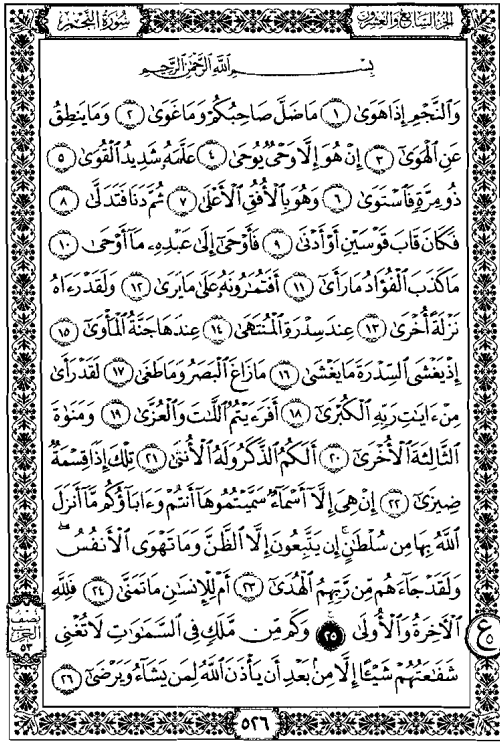 سُورَةُ النَّجْمِ
الجُزْءُ السَّابِعُ وَالعِشْرُونَ
بِسْمِ اللَّهِ الرَّحْمَٰنِ الرَّحِيمِ
وَٱلنَّجْمِ إِذَا هَوَىٰ ١ مَا ضَلَّ صَاحِبُكُمْ وَمَا غَوَىٰ ٢ وَمَا يَنطِقُ
عَنِ ٱلْهَوَىٰٓ ٣ إِنْ هُوَ إِلَّا وَحْىٌ يُوحَىٰ ٤ عَلَّمَهُۥ شَدِيدُ ٱلْقُوَىٰ ٥
ذُو مِرَّةٍ فَٱسْتَوَىٰ ٦ وَهُوَ بِٱلْأُفُقِ ٱلْأَعْلَىٰ ٧ ثُمَّ دَنَا فَتَدَلَّىٰ ٨
فَكَانَ قَابَ قَوْسَيْنِ أَوْ أَدْنَىٰ ٩ فَأَوْحَىٰٓ إِلَىٰ عَبْدِهِۦ مَآ أَوْحَىٰ ١٠
مَا كَذَبَ ٱلْفُؤَادُ مَا رَأَىٰٓ ١١ أَفَتُمَٰرُونَهُۥ عَلَىٰ مَا يَرَىٰ ١٢ وَلَقَدْ رَءَاهُ
نَزْلَةً أُخْرَىٰ ١٣ عِندَ سِدْرَةِ ٱلْمُنتَهَىٰ ١٤ عِندَهَا جَنَّةُ ٱلْمَأْوَىٰٓ ١٥
إِذْ يَغْشَى ٱلسِّدْرَةَ مَا يَغْشَىٰ ١٦ مَا زَاغَ ٱلْبَصَرُ وَمَا طَغَىٰ ١٧ لَقَدْ رَأَىٰ
مِنْ ءَايَٰتِ رَبِّهِ ٱلْكُبْرَىٰٓ ١٨ أَفَرَءَيْتُمُ ٱللَّٰتَ وَٱلْعُزَّىٰ ١٩ وَمَنَوٰةَ
ٱلثَّالِثَةَ ٱلْأُخْرَىٰٓ ٢٠ أَلَكُمُ ٱلذَّكَرُ وَلَهُ ٱلْأُنثَىٰ ٢١ تِلْكَ إِذًا قِسْمَةٌ
ضِيزَىٰٓ ٢٢ إِنْ هِىَ إِلَّآ أَسْمَآءٌ سَمَّيْتُمُوهَآ أَنتُمْ وَءَابَآؤُكُم مَّآ أَنزَلَ
ٱللَّهُ بِهَا مِن سُلْطَٰنٍ ۚ إِن يَتَّبِعُونَ إِلَّا ٱلظَّنَّ وَمَا تَهْوَى ٱلْأَنفُسُ ۖ
وَلَقَدْ جَآءَهُم مِّن رَّبِّهِمُ ٱلْهُدَىٰٓ ٢٣ أَمْ لِلْإِنسَٰنِ مَا تَمَنَّىٰ ٢٤ فَلِلَّهِ
ٱلْءَاخِرَةُ وَٱلْأُولَىٰ ٢٥ وَكَم مِّن مَّلَكٍ فِى ٱلسَّمَٰوَٰتِ لَا تُغْنِى
شَفَٰعَتُهُمْ شَيْـًٔا إِلَّا مِنۢ بَعْدِ أَن يَأْذَنَ ٱللَّهُ لِمَن يَشَآءُ وَيَرْضَىٰٓ ٢٦
نصف
الحزب
٥٣
ع
٥
٥٢٦